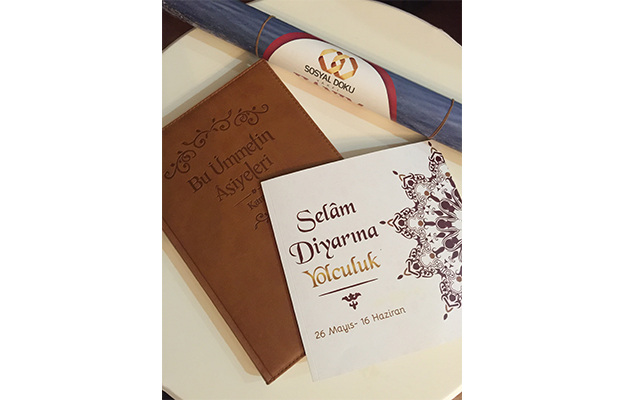 SOSYAL DOKU
Bu Ümmetin
Asiyeleri
Selâm
Diyarına
Yolculuk
26 Mayıs- 16 Haziran